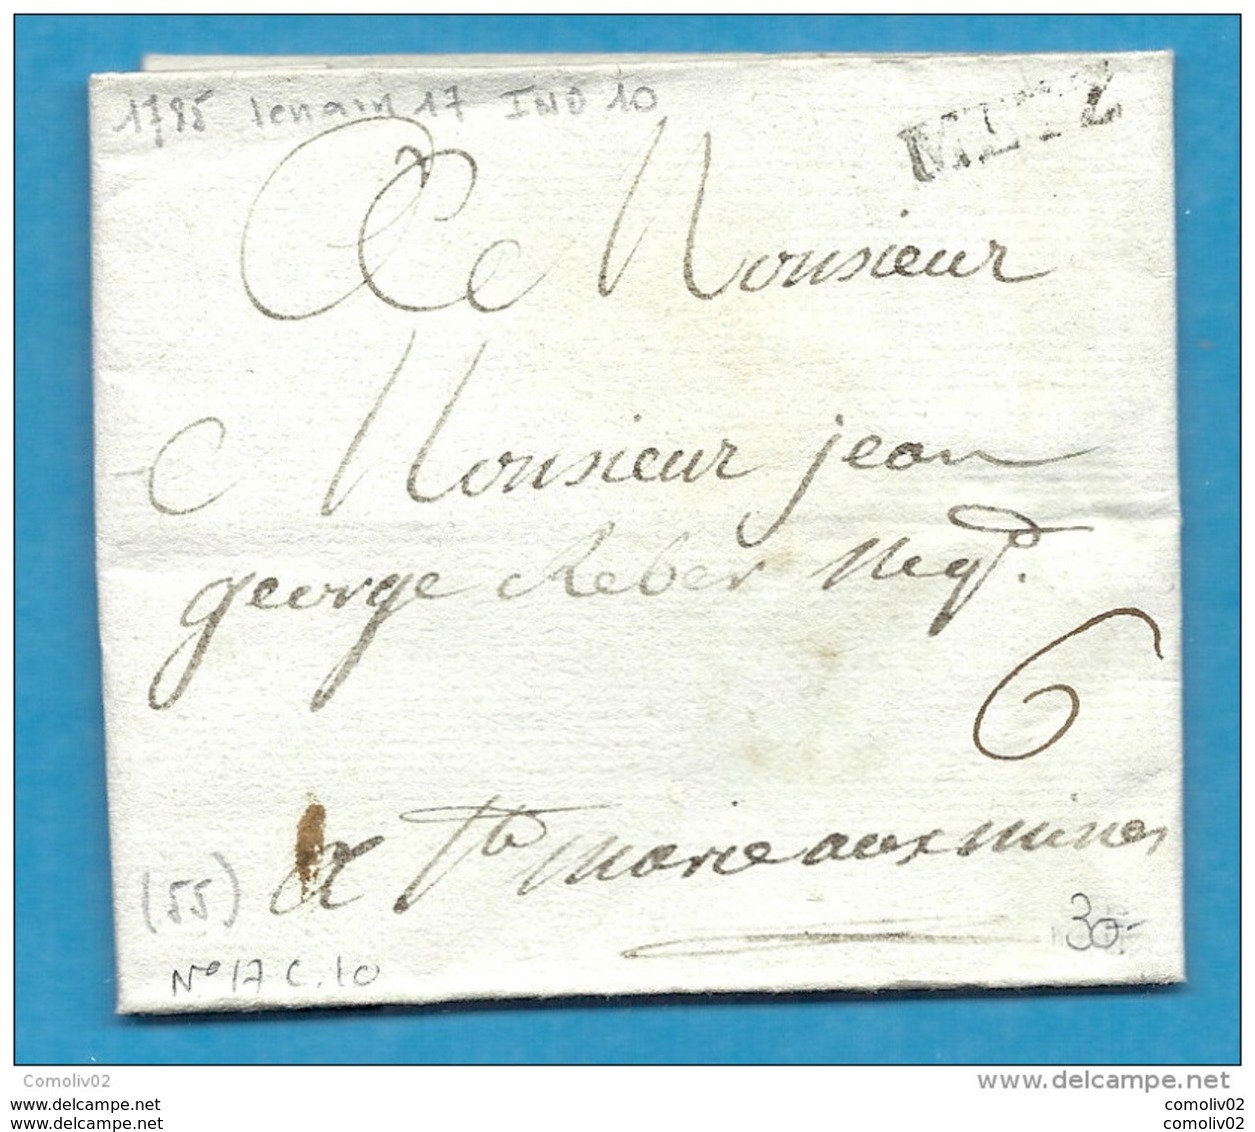 1785 lenain 17 IND 10
METZ
A Monsieur
Monsieur jean
george Reber Negt.
6
a Ste marie aux mines
(55)
30-
N° 17 C. 10
www.delcampe.net
Comoliv02
comoliv02
comoliv02
comoliv02
comoliv02